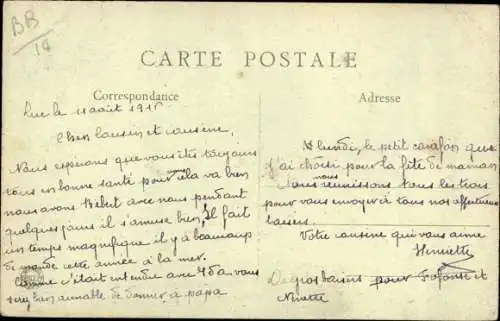 BB
18
CARTE POSTALE
Correspondance
Adresse
Luc le 11 août 191
Cher cousin et cousine,
Nous espérons que vous êtes toujours
tous en bonne santé pour cela va bien
nous avons Bébert avec nous pendant
quelques jours il s'amuse bien, Il fait
un temps magnifique il y a beaucoup
de monde cette année à la mer.
comme c'était entendu avec vous
bien aimable de donner à papa
lundi, le petit carafon que
j'ai choisi pour la fête de maman
Nous nous réunissons tous les trois
pour vous envoyer à tous nos affectueux
baisers.
Votre cousine qui vous aime
Henriette
De gros baisers pour et
Ninette